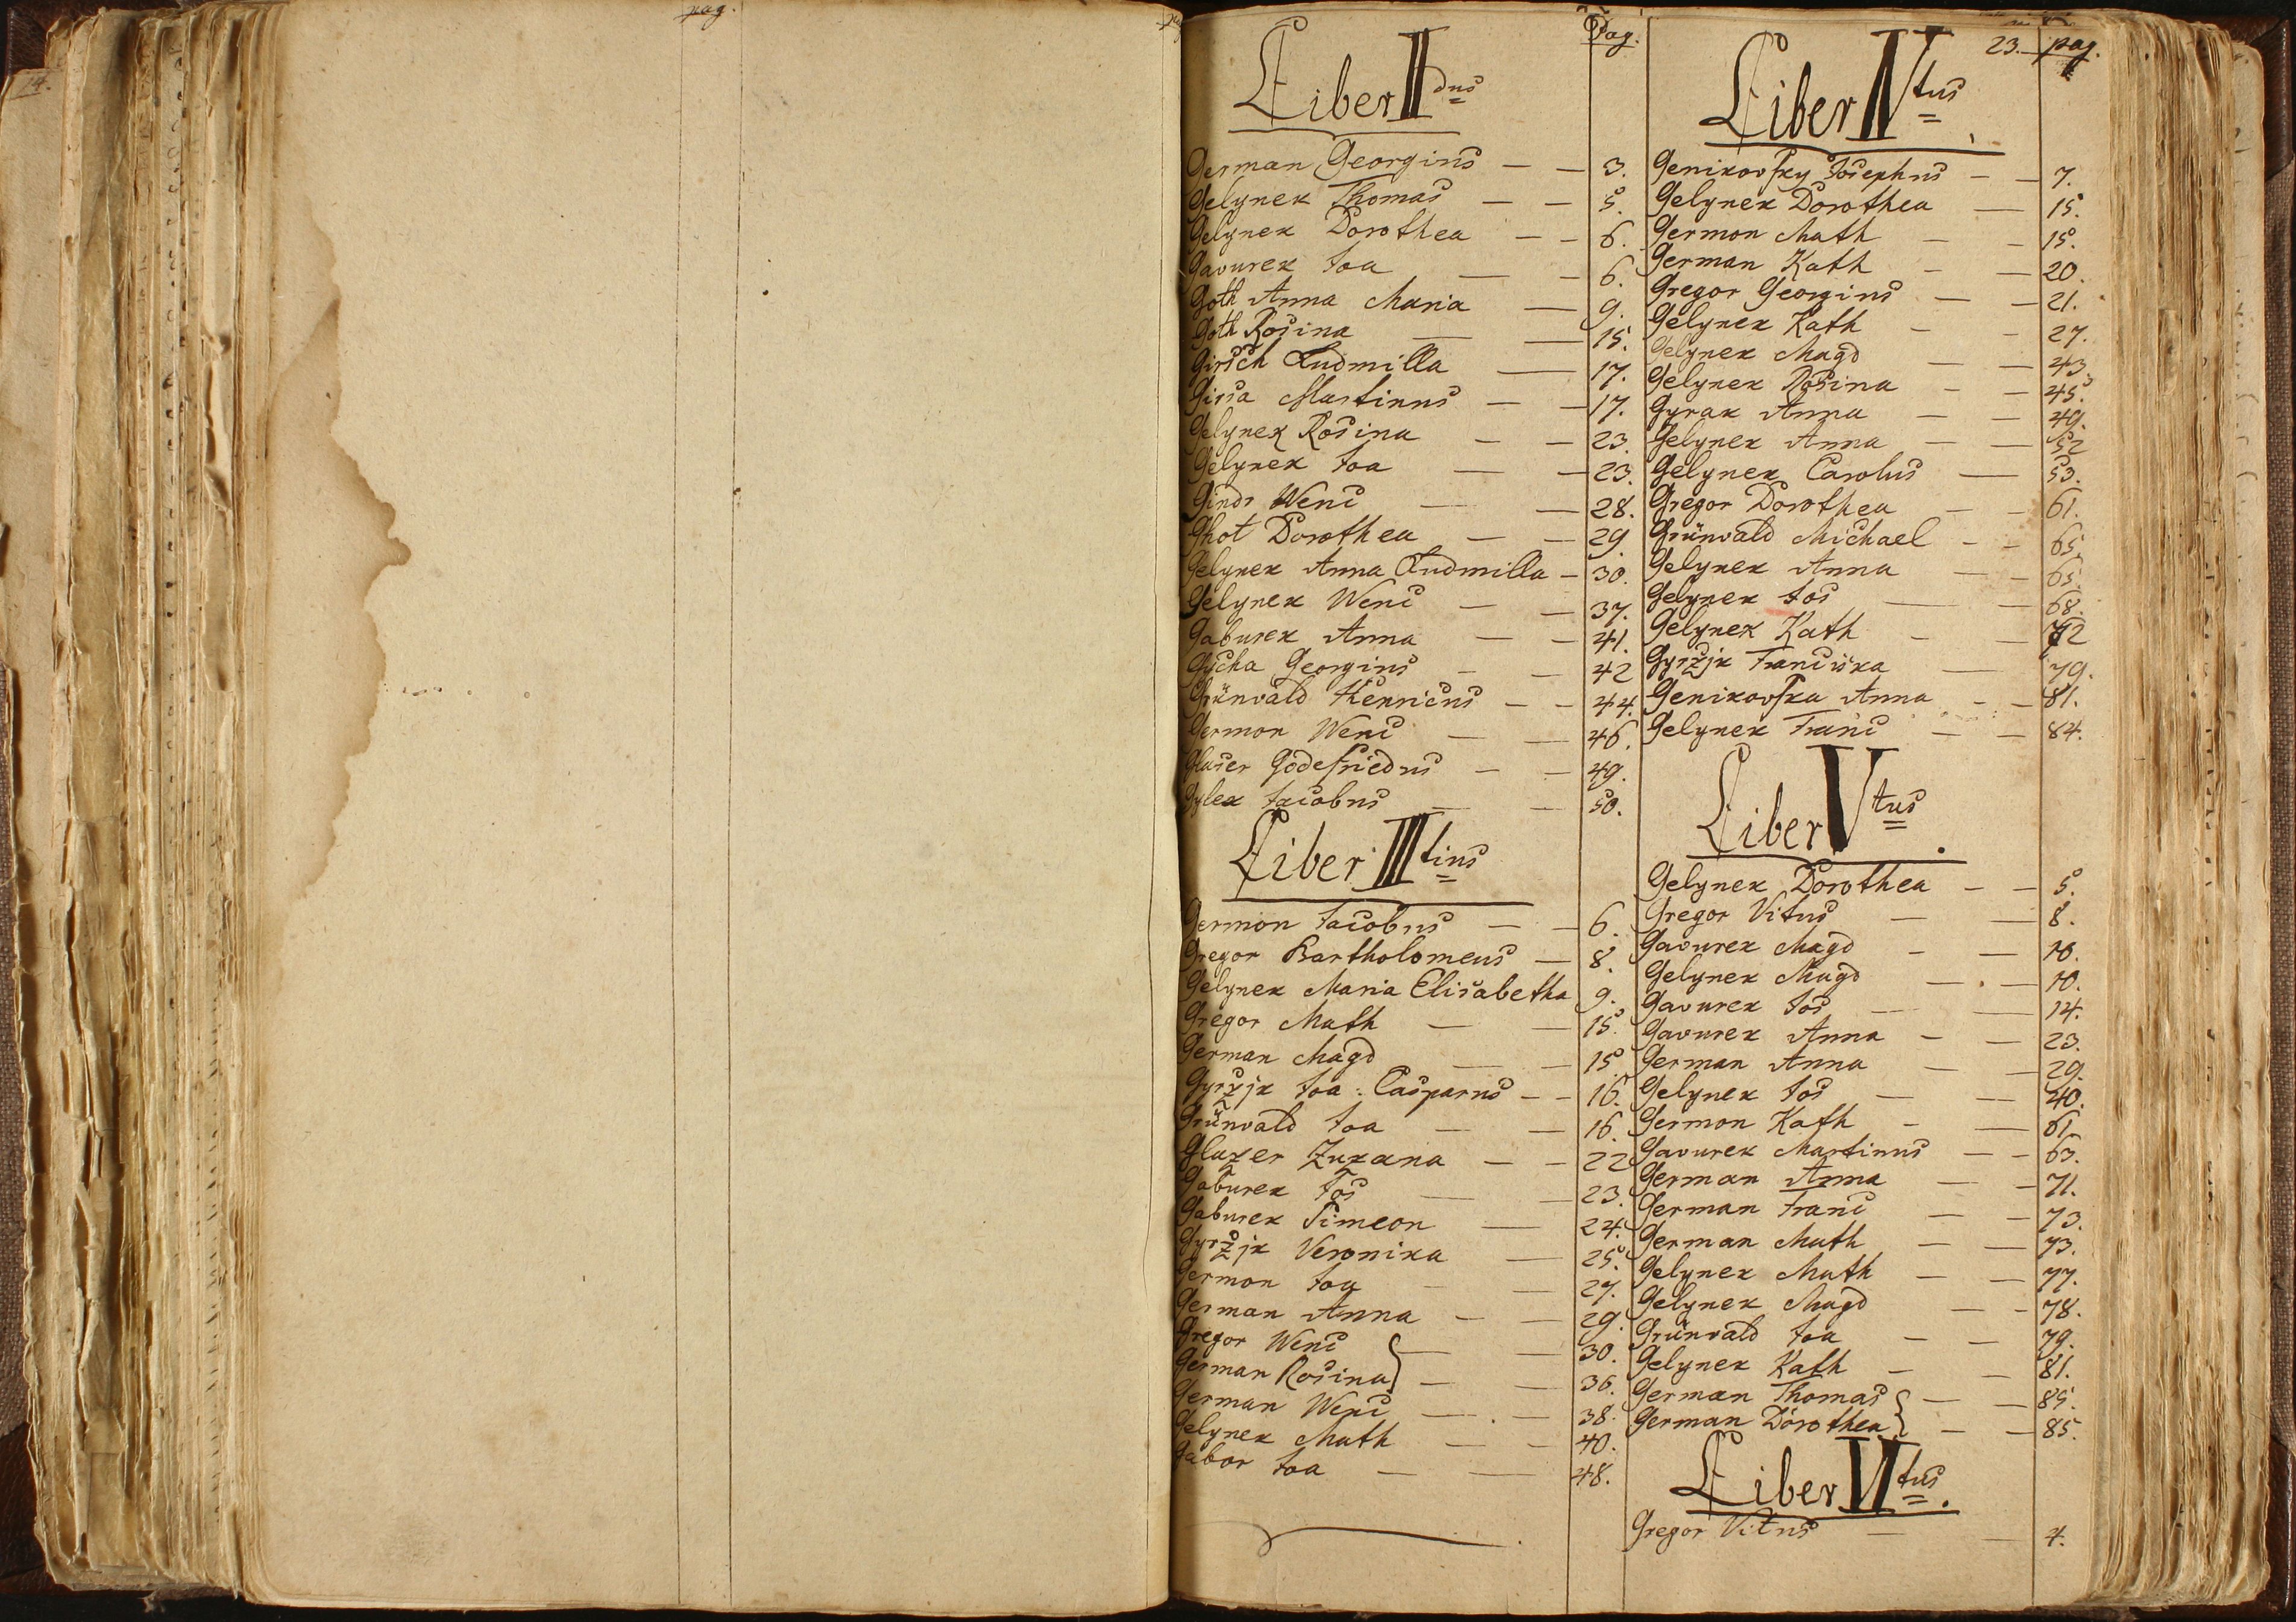 14.
pag.
Pag.
Liber II dus
German Georgius — — 3.
Gelynek Thomas — — 5.
Gelynek Dorothea — — 6.
Gavurek Joa — — 6.
Goth Anna Maria — 9.
Goth Rosina — — 15.
Girsch Ludmilla — 17.
Girsa Martinus — — 17.
Gelynek Rosina — — 23.
Gelynek Joa — — 23.
Gindr Wenc — — 28.
Ghot Dorothea — — 29
Gelynek Anna Ludmilla — 30.
Gelynek Wenc — — 37.
Gaburek Anna — — 41.
Gÿcha Georgius — — 42
Grünvald Henricus — — 44.
Germon Wenc — — 46.
Glaser Godefriedus — — 49.
Gylek Jacobus — — 50.
Liber III tius
Germon Jacobus — — 6.
Gregor Bartholomeus — 8.
Gelynek Maria Elisabetha 9.
Gregor Math — — 15.
German Magd — — 15.
Gyržjk Joa: Casparus — — 16.
Grünvald Joa — — 16.
Glazer Zuzana — — 22
Gaburek Jos — — 23.
Gaburek Simeon — 24.
Gyržjk Veronika — 25.
Germon Joa — — 27.
German Anna — — 29.
Gregor Wenc — — 30.
German Rosina — — 36.
German Wenc — . — 38.
Gelynek Math — — 40.
Gabor Joa — — 48.
23. pag.
Liber IV tus
Genikovsky Josephus — — 7.
Gelynek Dorothea — 15.
Germon Math — — 15.
German Kath — — 20.
Gregor Georgius — — 21.
Gelynek Kath — — 27.
Gelynek Magd — — 43.
Gelynek Rosina — — 45.
Gyrak Anna — — 49.
Gelynek Anna — — 52
Gelynek Carolus — 53.
Gregor Dorothea — — 61.
Grünvald Michael — — 65.
Gelynek Anna — — 65.
Gelynek Jos — — 68.
Gelynek Kath — — 72
Gyržjk Franciska — 79.
Genikovska Anna — — 81.
Gelynek Franc — — 84.
Liber V tus
Gelynek Dorothea — — 5.
Gregor Vitus — — 8.
Gavurek Magd — — 10.
Gelynek Magd — . — 10.
Gavurek Jos — — 14.
Gavurek Anna — — 23.
German Anna — — 29.
Gelynek Jos — — 40.
Germon Kath — — 61.
Gavurek Martinus — — 63.
German Anna — — 71.
German Franc — — 73.
German Math — — 73.
Gelynek Math — — 77.
Gelynek Magd — — 78.
Grünvald Joa — — 79.
Gelynek Kath — — 81.
German Thomas — — 85.
German Dorothea — — 85.
Liber VI tus.
Gregor Vitus — — 4.